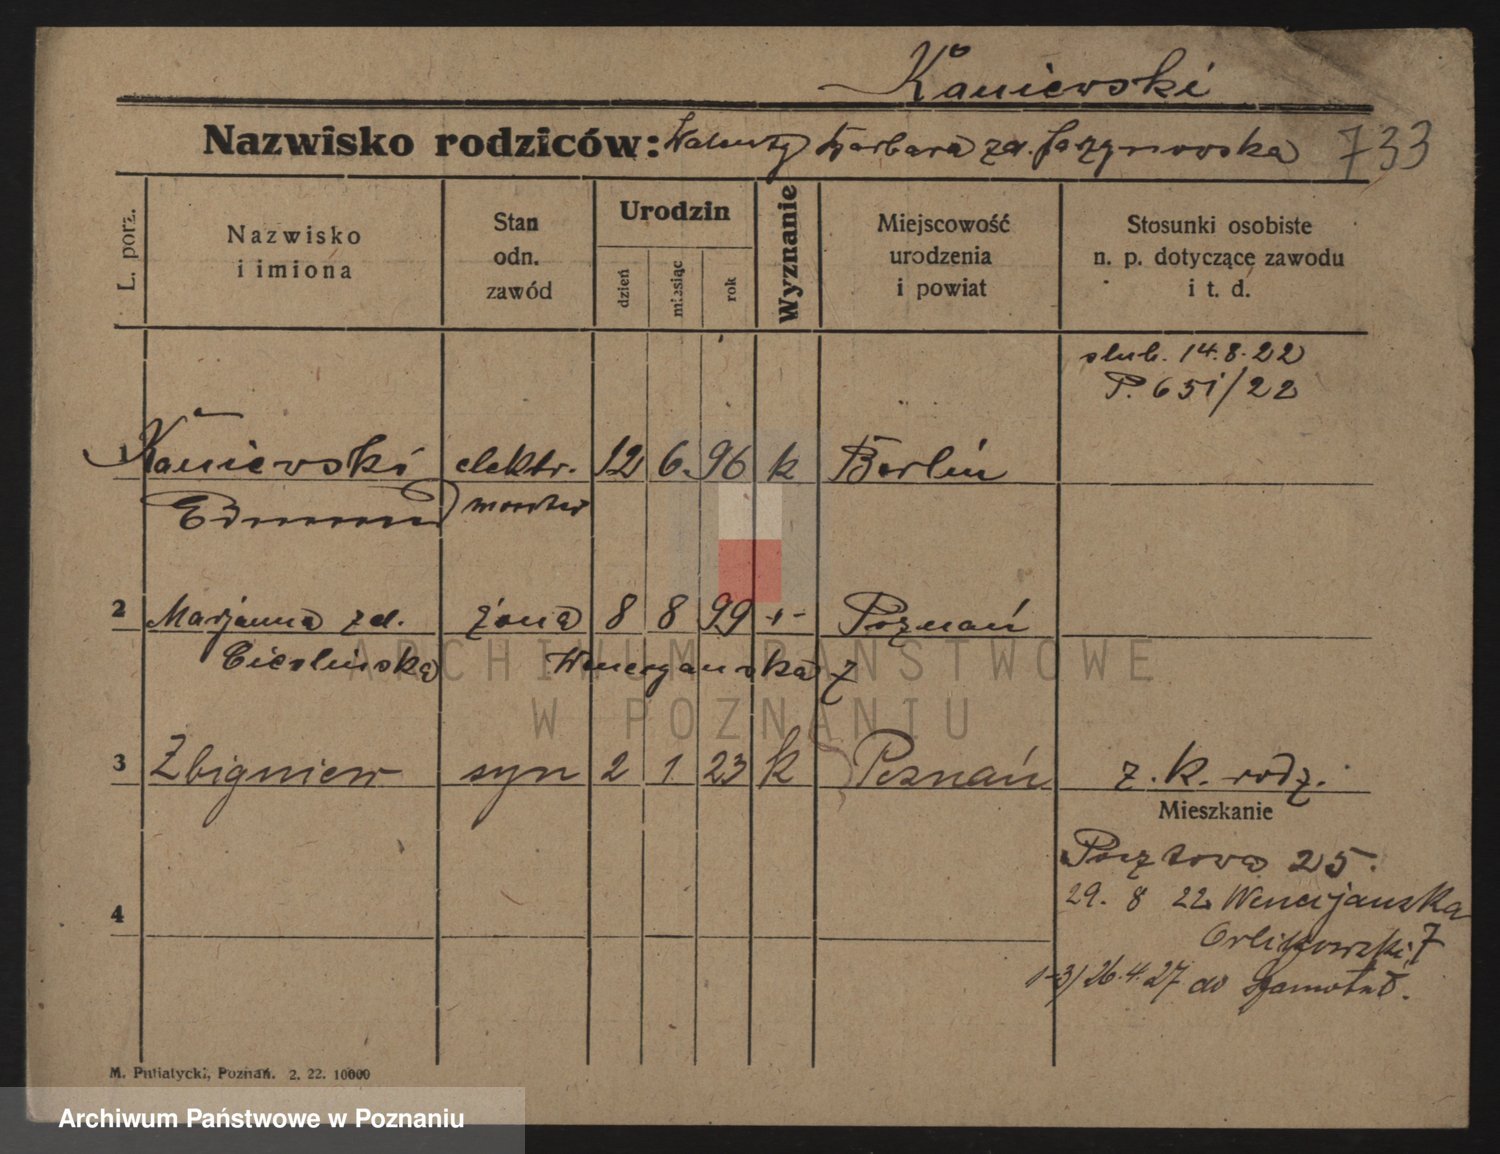 Kaniewski
Nazwisko rodziców: Walenty Barbara zd. Jazynowska 733
L. porz.
Nazwisko
i imiona
Stan
odn.
zawód
Urodzin
dzień
miesiąc
rok
Wyznanie
Miejscowość
urodzenia
i powiat
Stosunki osobiste
n. p. dotyczące zawodu
i t. d.
slub. 14.8.22
P. 651/22
1 Kaniewski elektr. 12 6. 96 k Berlin
Edmund monter
2 Marjanna zd. żona 8 8 99 -"- Poznań
Cieslinska Wenecyanska 7
3 Zbigniew syn 2 1 23 k Poznań z. k. rodz.
Mieszkanie
Pocztowa 25.
4
29. 8 22 Wenecjanska
Orlikowski 7
1-3/26.4.27 do Szamotuł.
M. Putiatycki, Poznań. 2. 22. 10000
ARCHIWUM PAŃSTWOWE
W POZNANIU
Archiwum Państwowe w Poznaniu